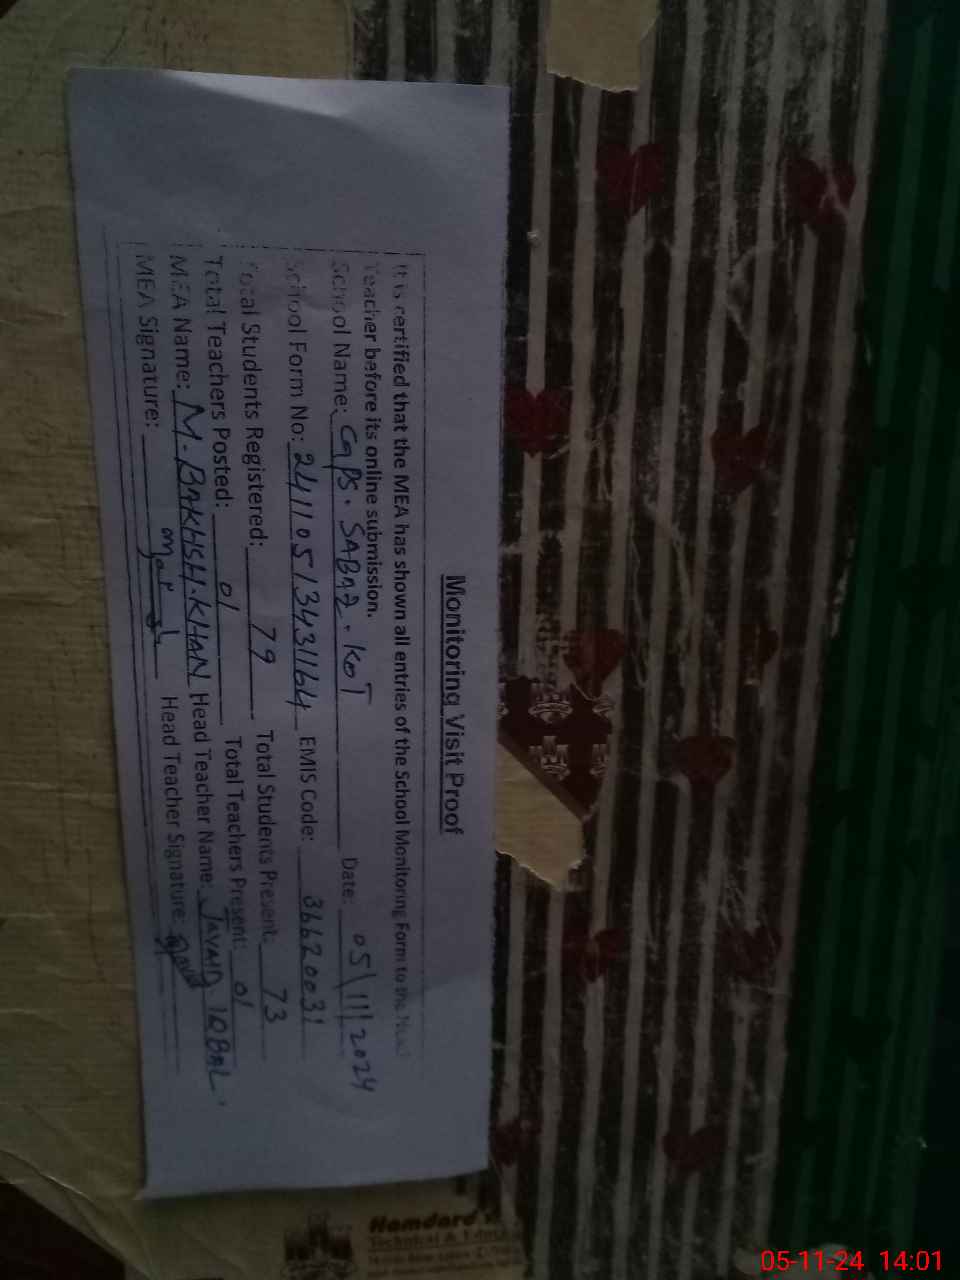 Monitoring Visit Proof
It is certified that the MEA has shown all entries of the School Monitoring Form to the Head
Teacher before its online submission.
School Name: GPS. SABAZ. KOT Date: 05/11/2024
School Form No: 24110513431164 EMIS Code: 36620031
Total Students Registered: 79 Total Students Present: 73
Total Teachers Posted: 01 Total Teachers Present: 01
MEA Name: M. BAKHSH. KHAN Head Teacher Name: JAVAID IQBAL.
MEA Signature: Head Teacher Signature:
Hamdard
Technical &
05-11-24 14:01